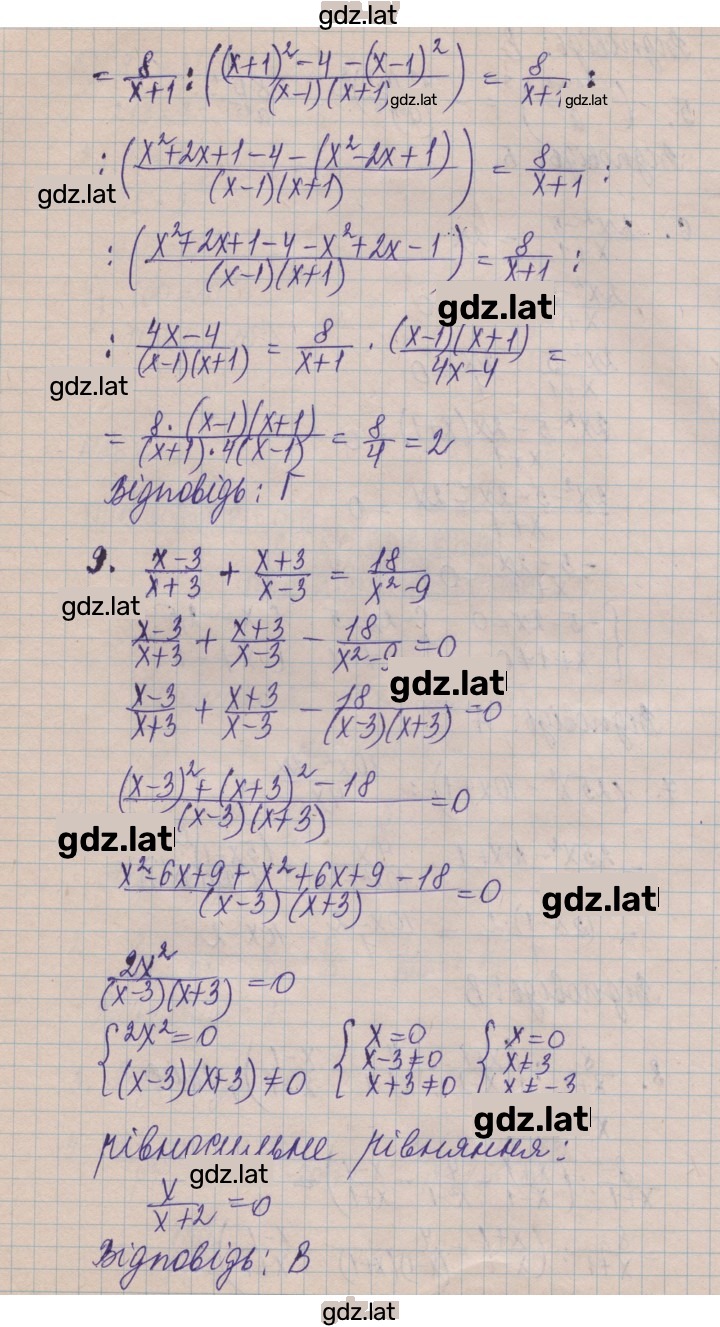 gdz.lat
= 8/(x+1) : (((x+1)²-4-(x-1)²)/((x-1)(x+1))) = 8/(x+1) :
gdz.lat gdz.lat
: ((x²+2x+1-4-(x²-2x+1))/((x-1)(x+1))) = 8/(x+1) :
gdz.lat
: ((x²+2x+1-4-x²+2x-1)/((x-1)(x+1))) = 8/(x+1) :
gdz.lat
: (4x-4)/((x-1)(x+1)) = 8/(x+1) · ((x-1)(x+1))/(4x-4) =
gdz.lat
= (8·(x-1)(x+1))/((x+1)·4(x-1)) = 8/4 = 2
Відповідь: Г
9. (x-3)/(x+3) + (x+3)/(x-3) = 18/(x²-9)
gdz.lat
(x-3)/(x+3) + (x+3)/(x-3) - 18/(x²-9) = 0
gdz.lat
(x-3)/(x+3) + (x+3)/(x-3) - 18/((x-3)(x+3)) = 0
((x-3)²+(x+3)²-18)/((x-3)(x+3)) = 0
gdz.lat
(x²-6x+9+x²+6x+9-18)/((x-3)(x+3)) = 0
gdz.lat
2x²/((x-3)(x+3)) = 0
{2x²=0 {x=0 {x=0
(x-3)(x+3)≠0 x-3≠0 x≠3
x+3≠0 x≠-3
gdz.lat
рівносильне рівняння:
gdz.lat
x/(x+2) = 0
Відповідь: В
gdz.lat